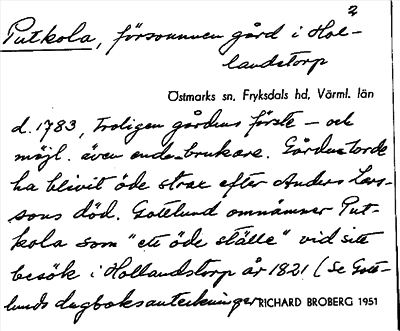 2
Putkola, försvunnen gård i Hol-
landstorp
Östmarks sn, Fryksdals hd, Värml. län
d. 1783, troligen gårdens förste – och
möjl. även ende brukare. Gården torde
ha blivit öde strax efter Anders Lars-
sons död. Gottlund omnämner Put-
kola som "ett öde ställe" vid sitt
besök i Hollandstorp år 1821 (Se Gott-
lunds dagboksanteckningar
RICHARD BROBERG 1951